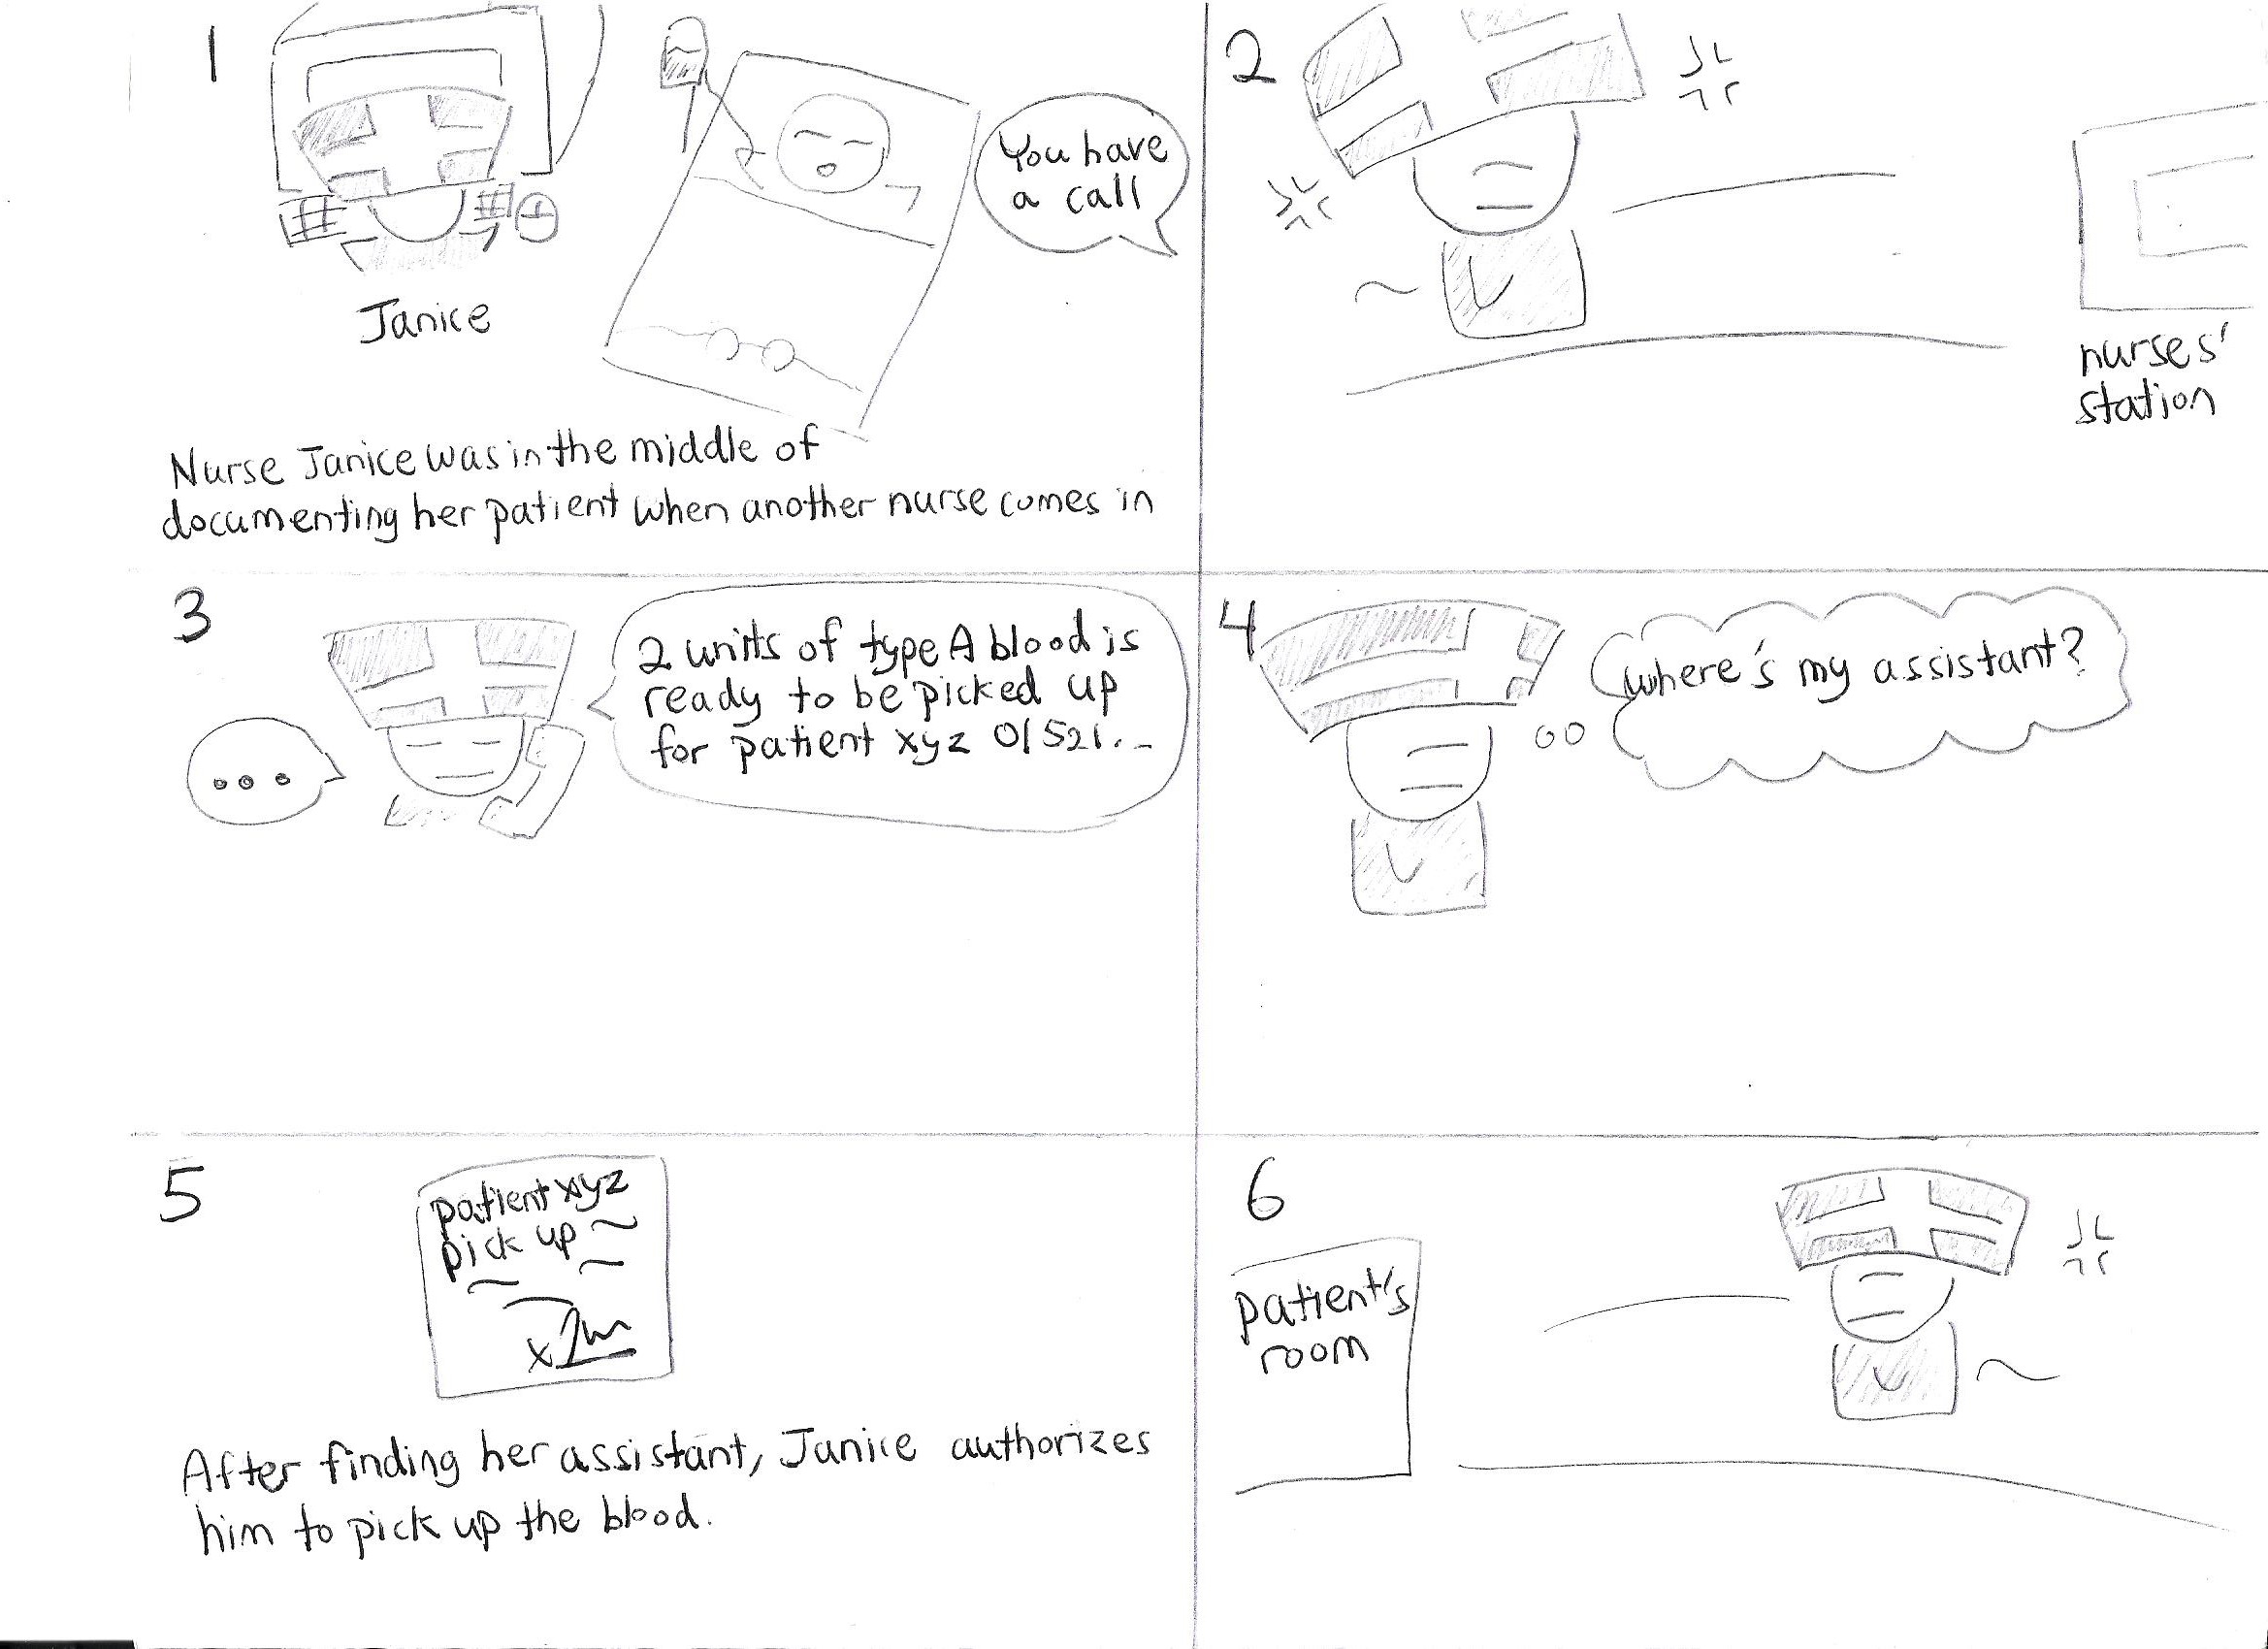 1
You have
a call
Janice
Nurse Janice was in the middle of
documenting her patient when another nurse comes in
2
nurses'
station
3
2 units of type A blood is
ready to be picked up
for patient xyz 01521...
...
4
where's my assistant?
5
patient xyz
pick up
x
After finding her assistant, Janice authorizes
him to pick up the blood.
6
patient's
room